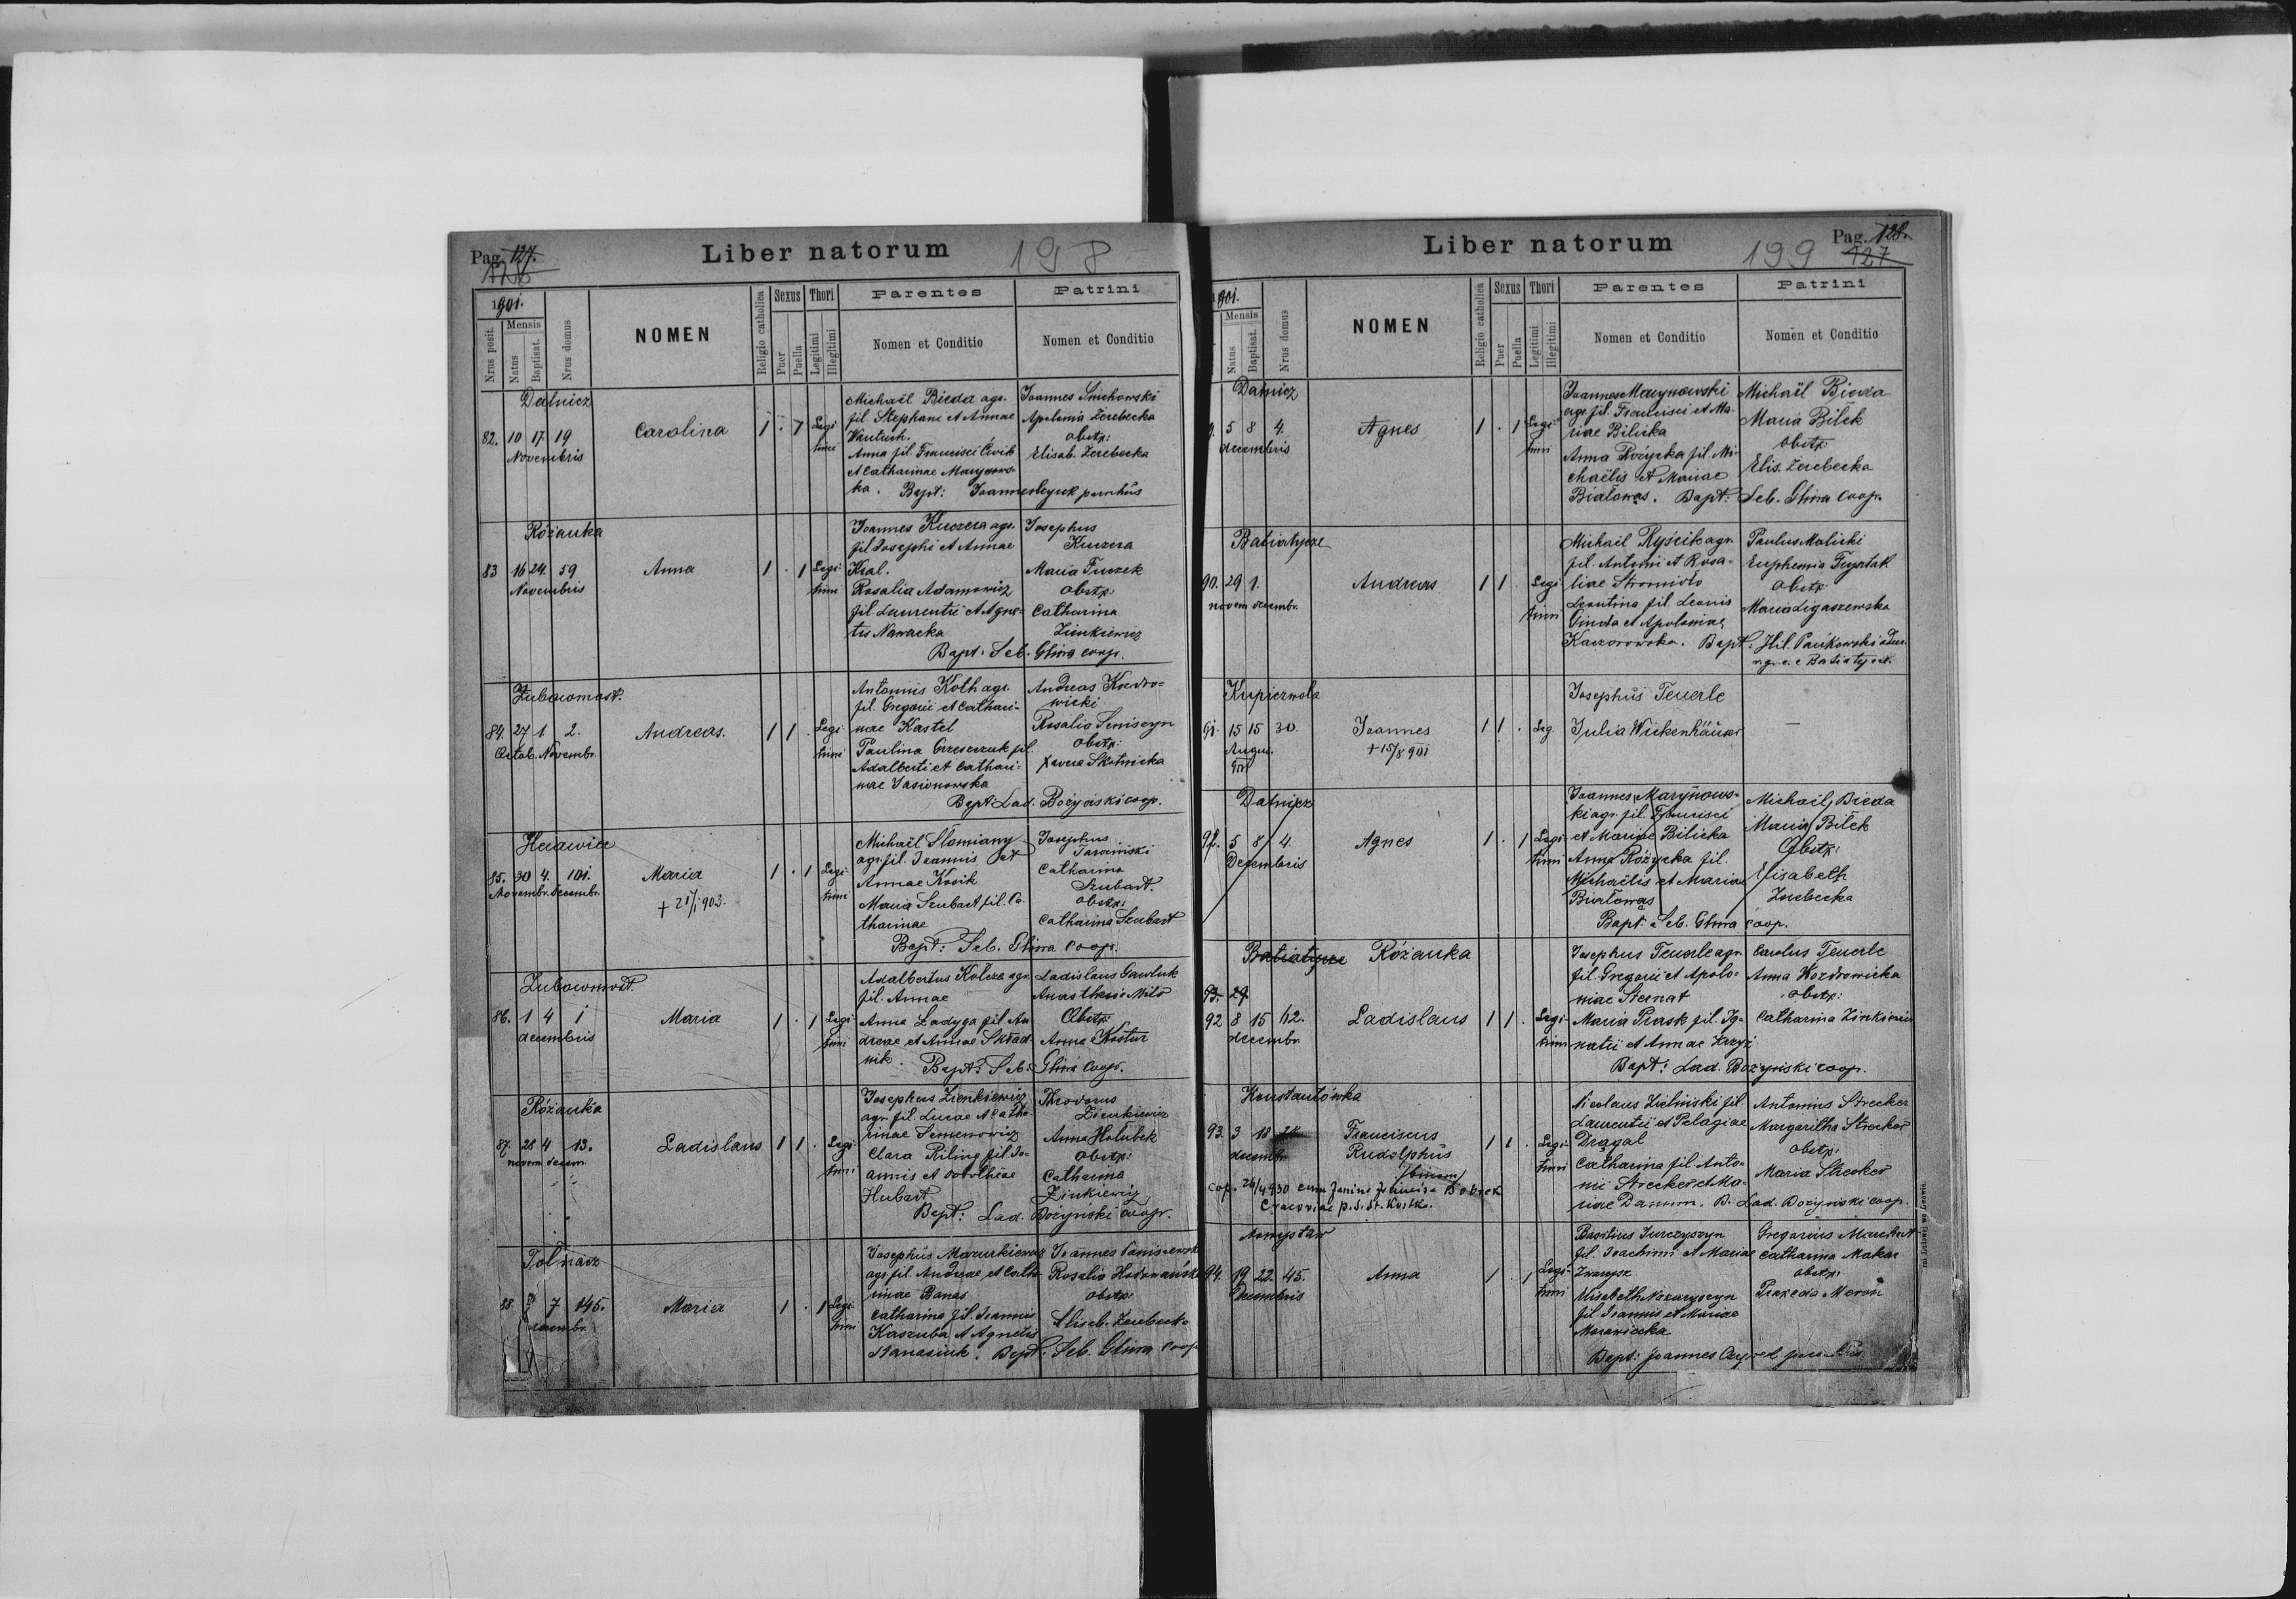 Pag. 127.
Liber natorum 198
1901.
Nrus posit.
Mensis
Natus
Baptisat.
Nrus domus
NOMEN
Religio catholica
Sexus
Puer
Puella
Thori
Legitimi
Illegitimi
Parentes
Nomen et Conditio
Patrini
Nomen et Conditio
Dalnicz
82. 10 17 19
Novembris
Carolina
1 . 1 Legi-
timi
Michaël Bieda agr.
fil Stephani et Annae
Anna fil Francisci Ćwik
et Catharinae Marynows-
ka. Bapt: Joannes parochus
Joannes Smichowski
Apolonia Zerebecka
obstp:
Elisab. Zerebecka
Różanka
83 16 24. 59
Novembris
Anna
1 . 1 Legi-
timi
Joannes Kuczera agr.
fil Josephi et Annae
Kral.
Rosalia Adamowicz
fil. Laurentii et Agne-
tis Nawacka
Bapt: Seb. Glina coop.
Josephus
Kuczera
Maria Fuczek
obstp:
Catharina
Zinkiewicz
Zubowmost.
84. 27 1 2.
Octob. Novembr.
Andreas.
1 1 . Legi-
timi
Antonius Koth agr.
fil. Gregorii et Cathari-
nae Kastel
Paulina Grzesczuk fil.
Adalberti et Cathari-
nae Jasionowska
Bapt: Lad. Bożyński coop.
Andreas Kozdro-
wicki
Rosalia Semiszyn
obstp:
Xavera Skotnicka
85. 30 4. 101.
Novembr. Decembr.
Maria
+ 21/1 903.
1 . 1 Legi-
timi
Michaël Słomiany
agr. fil. Joannis et
Annae Kosik
Maria Szubart fil. Ca-
tharinae
Bapt: Seb. Glina coop.
Josephus
Catharina
Szubart.
obstp:
Catharina Szubart
Zubowmost.
86. 1 4 1
decembris
Maria
1 . 1 Legi-
timi
Adalbertus Kolcza agr.
fil. Annae
Anna Ładyga fil An-
dreae et Annae Skład-
nik. Bapt: Seb. Glina coop.
Ladislaus Gawluk
obstp:
Anna Kostur
Różanka
87. 28 4 13.
novem decem.
Ladislaus
1 1 . Legi-
timi
Josephus Zienkiewicz
agr. fil. Lucae et Catha-
rinae Semenowicz
Clara Riling fil. Jo-
annis et Dorotheae
Hubart
Bapt: Lad. Bożyński coop.
Theodorus
Zienkiewicz
Anna Holubek
obstp:
Catharina
Zinkiewicz
88. 7 145.
Maria
1 . 1 Legi-
timi
Josephus Mazurkiewicz
agr. fil. Andreae et Catha-
rinae Banas
Catharina fil. Joannis
Kaszuba et Agnetis
Banasiuk. Bapt: Seb. Glina coop.
obstp:
Eliseb. Zerebecka
Liber natorum 199
Pag. 128.
127
1901.
Mensis
Natus
Baptisat.
Nrus domus
NOMEN
Religio catholica
Sexus
Puer
Puella
Thori
Legitimi
Illegitimi
Parentes
Nomen et Conditio
Patrini
Nomen et Conditio
Dalnicz
5 8 4.
decembris
Agnes
1 . 1 Legi-
timi
Joannes Marynowski
agr. fil. Francisci et Ma-
riae Bilicka
Anna Rozycka fil. Mi-
chaëlis et Mariae
Białowąs. Bapt: Seb. Glina coop.
Michaël Bieda
Maria Bilek
obstp:
Elis. Zerebecka
Batiatycze
90. 29 1.
novem decembr.
Andreas
1 1 . Legi-
timi
Michaël Ryścik agr.
fil. Antoni et Rosa-
liae Stromidło
Leontina fil. Leonis
Ginda et Apoloniae
Kaczorowska. Bapt:
Paulus Malicki
obstp:
Maria Ligaszewska
Kupiczwola
91. 15 15 30.
Joannes
+ 15/8 901
1 1 . Leg.
Josephus Teuerle
Julia Wickenhäuser
—
Dalnicz
92. 5 8 4.
Decembris
Agnes
1 . 1 Legi-
timi
Joannes Marynows-
ki agr. fil. Francisci
et Mariae Bilicka
Anna Różycka fil.
Michaëlis et Mariae
Białowąs
Bapt: Seb. Glina coop.
Michaël Bieda
Maria Bilek
Obstp:
Elisabeth
Zerebecka
Batiatycze Różanka
93. 29
92 8 15 62.
decembr.
Ladislaus
1 1 . Legi-
timi
Josephus Teuerle agr.
fil. Gregorii et Apolo-
niae Sternat
Maria Prask fil. Ig-
natii et Annae Krzyż
Bapt: Lad. Bożyński coop.
Carolus Teuerle
Anna Kozdrowicka
obstp:
Catharina Zinkiewicz
Konstantówka
93. 3 18 28
decembr.
Franciscus
Rudolphus
/binom/
cop. 26/4 930 cum Janina Bobrek
Cracoviae p. s. St. Kostka.
1 1 . Legi-
timi
Nicolaus Zieliński fil.
Laurentii et Pelagiae
Drągal
Catharina fil. Anto-
ni Strecker et Ma-
riae Damm. B. Lad. Bożyński coop.
Antonius Strecker
Margaritha Strecker
obstp:
Maria Strecker
94. 19 22. 45.
Decembris
Anna
1 . 1 Legi-
timi
Basilius Jurczyszyn
fil. Joachimi et Mariae
Zwarycz
Elisabeth Nazaryszyn
fil. Joannis et Mariae
Morawiecka
Bapt: Joannes parochus
Catharina Makar
obstp: